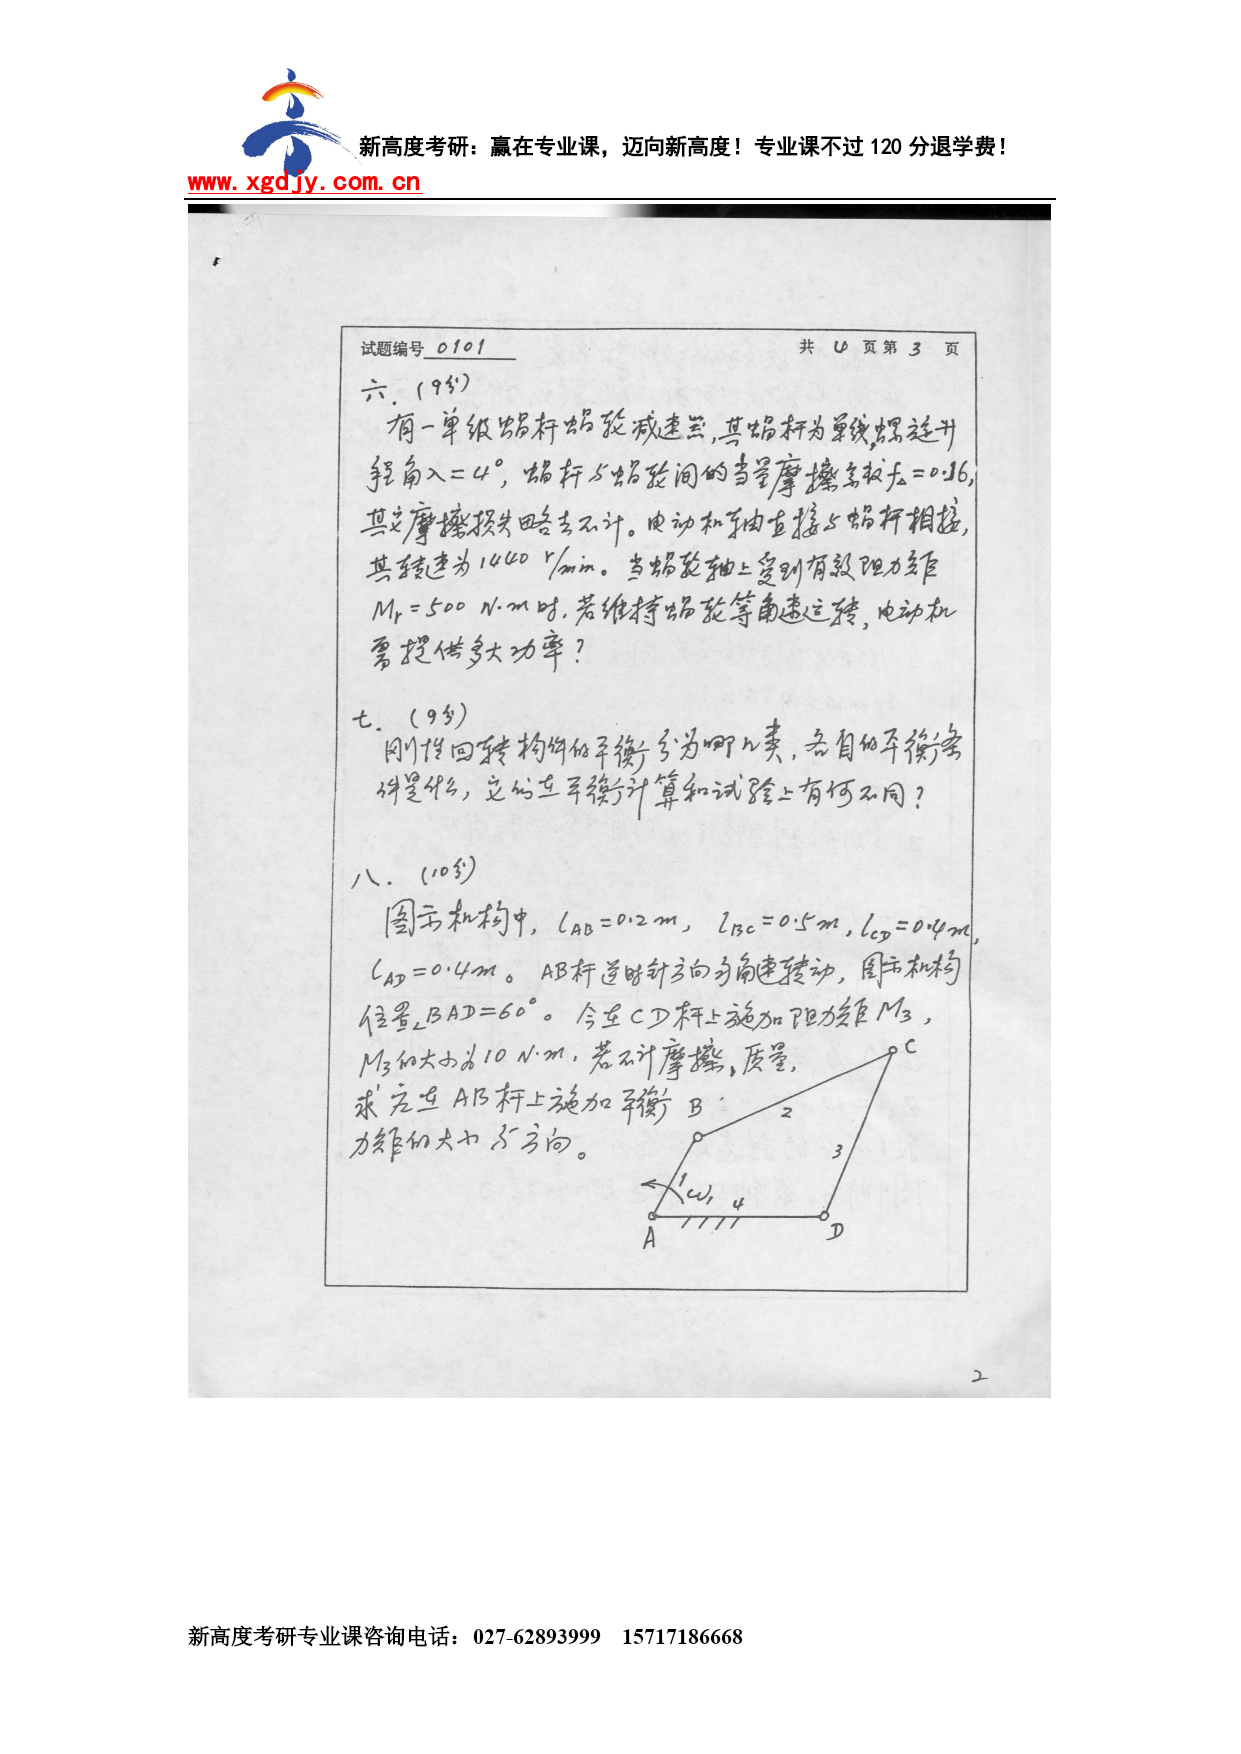 新高度考研：赢在专业课，迈向新高度！专业课不过 120 分退学费！
www.xgdjy.com.cn
试题编号 0101 共 4 页第 3 页
六．(9分)
有一单级蜗杆蜗轮减速器，其蜗杆为单线，螺旋升
程角λ=4°，蜗杆与蜗轮间的当量摩擦系数f△=0.16，
其它摩擦损失略去不计。电动机轴直接与蜗杆相接，
其转速为1440 r/min。当蜗轮轴上受到有效阻力矩
Mr=500 N·m时，若维持蜗轮等角速运转，电动机
需提供多大功率？
七．(9分)
刚性回转构件的平衡分为哪几类，各自的平衡条
件是什么，它们在平衡计算和试验上有何不同？
八．(10分)
图示机构中，lAB=0.2m，lBC=0.5m，lCD=0.4m，
lAD=0.4m。AB杆逆时针方向匀角速转动，图示机构
位置∠BAD=60°。今在CD杆上施加阻力矩M3，
M3的大小为10 N·m，若不计摩擦、质量，
求应在AB杆上施加平衡
力矩的大小与方向。
C
B
2
3
1
ω1
4
A
D
2
新高度考研专业课咨询电话：027-62893999 15717186668